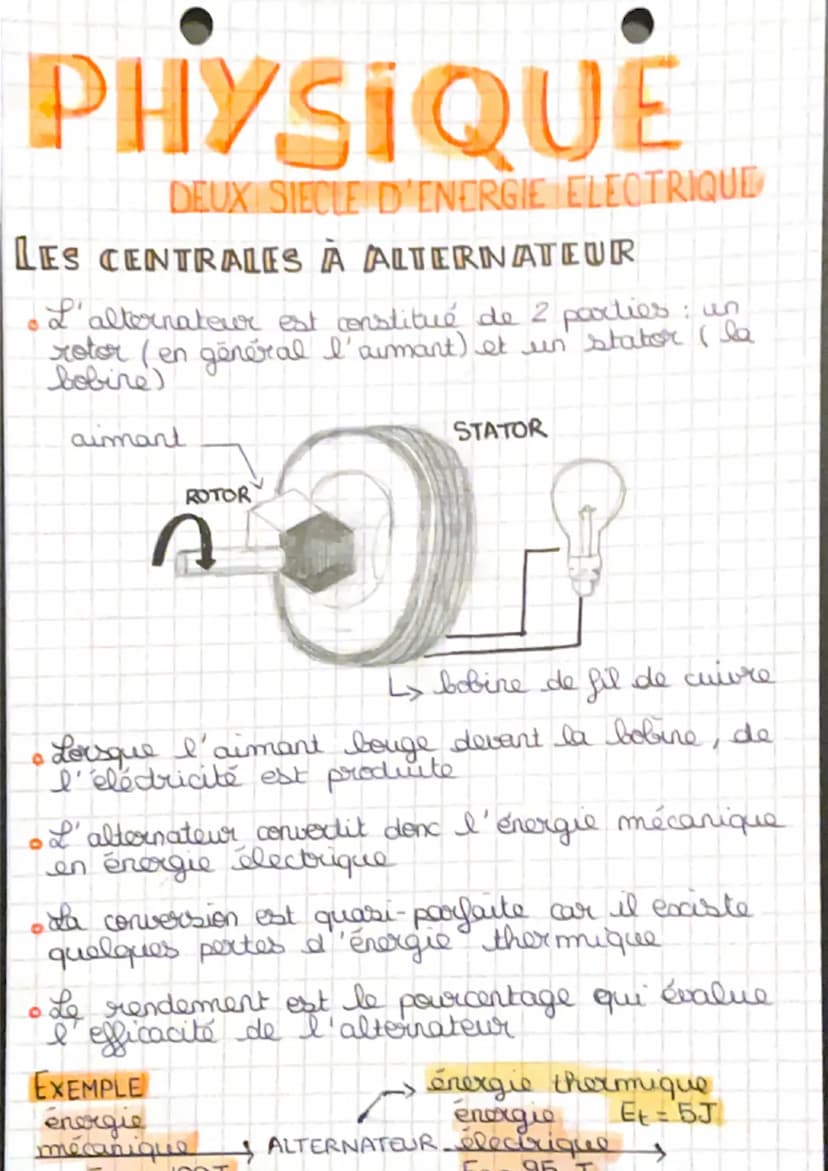 PHYSIQUE
DEUX SIECLE D'ENERGIE ELECTRIQUE
LES CENTRALES À ALTERNATEUR
• L'alternateur est constitué de 2 parties : un
rotor (en général l'aimant) et un stator ( la
bobine)
aimant
STATOR
ROTOR
↳ bobine de fil de cuivre
• Lorsque l'aimant bouge devant la bobine, de
l'éléctricité est produite
• L'alternateur convertit donc l'énergie mécanique
en énergie électrique
• La conversion est quasi-parfaite car il existe
quelques pertes d'énergie thermique
• Le rendement est le pourcentage qui évalue
l'efficacité de l'alternateur
EXEMPLE
énergie thermique
énergie
énergie
Et = 5J
mécanique → ALTERNATEUR électrique →
95 J